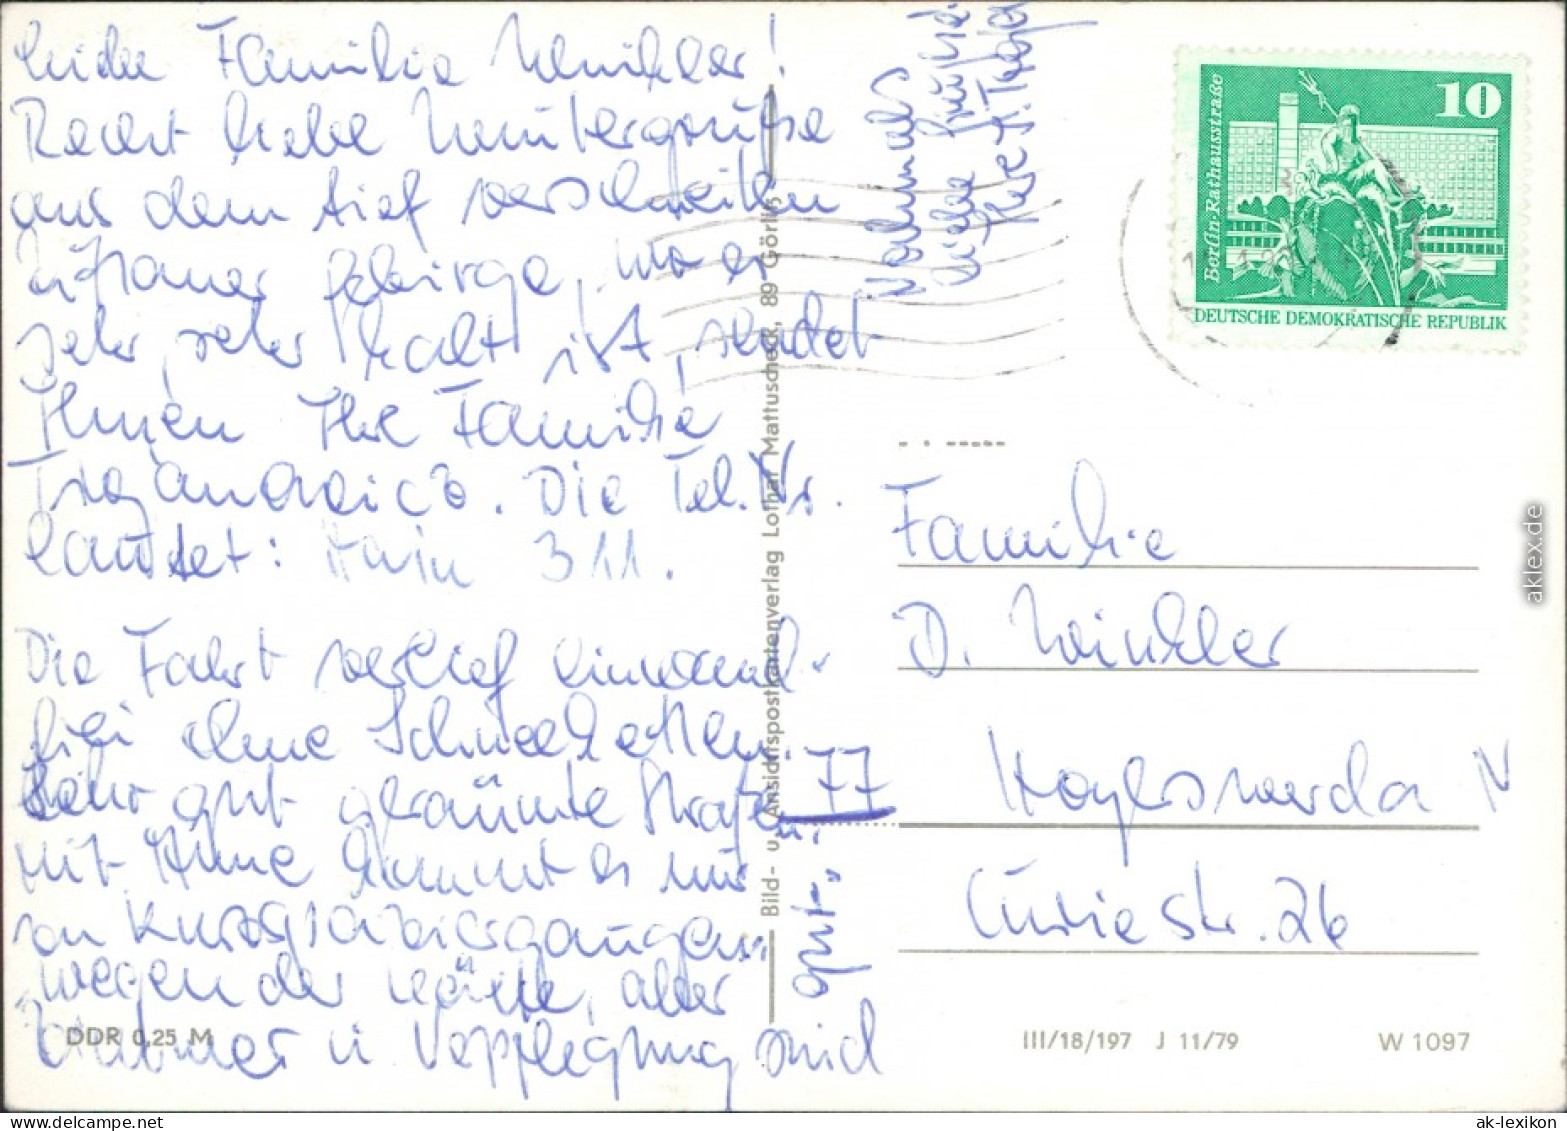 Liebe Familie Winkler!
Recht liebe Wintergrüße
aus dem tief verschneiten
Zittauer Gebirge, wo es
sehr, sehr kalt ist, sendet
Ihnen Ihre Familie
Die Tel. Nr.
lautet: Hain 311.
Die Fahrt verlief einwand-
frei ohne Schneeketten.
Sehr gut geräumte Straßen.
Mit Anne kommt es nur
zu Kurzspaziergängen
wegen der Kälte, aber
Zimmer u. Verpflegung sind
gut.
Nochmals
liebe Grüße
Ihre
77
Familie
D. Winkler
Hoyerswerda IV
Curiestr. 26
10
Berlin-Rathausstraße
DEUTSCHE DEMOKRATISCHE REPUBLIK
Bild- u. Ansichtspostkartenverlag Lothar Mattuscheck, 89 Görlitz
DDR 0,25 M
III/18/197 J 11/79
W 1097
aklex.de
ak-lexikon